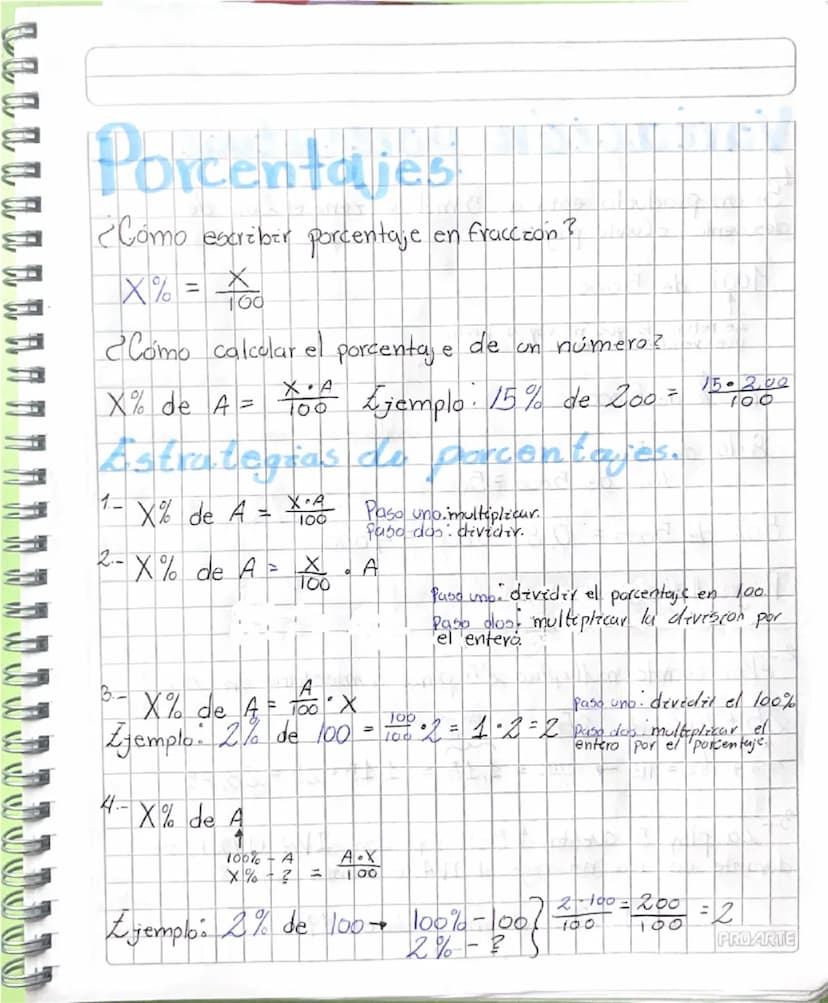 Porcentajes
¿Cómo escribir porcentaje en fracción?
X% = X/100
¿Cómo calcular el porcentaje de un número?
X% de A = X·A/100 Ejemplo: 15% de 200 = 15·200/100
Estrategias de porcentajes.
1.- X% de A = X·A/100 Paso uno: multiplicar.
Paso dos: dividir.
2.- X% de A = X/100 · A
Paso uno: dividir el porcentaje en 100
Paso dos: multiplicar la división por
el entero.
3.- X% de A = A/100 · X Paso uno: dividir el 100%
Ejemplo: 2% de 100 = 100/100 · 2 = 1·2 = 2 Paso dos: multiplicar el
entero por el porcentaje.
4.- X% de A
↑
100% - A
X% - ? = A·X/100
Ejemplo: 2% de 100 → 100% - 100 } 2·100/100 = 200/100 = 2
2% - ?
PROARTE